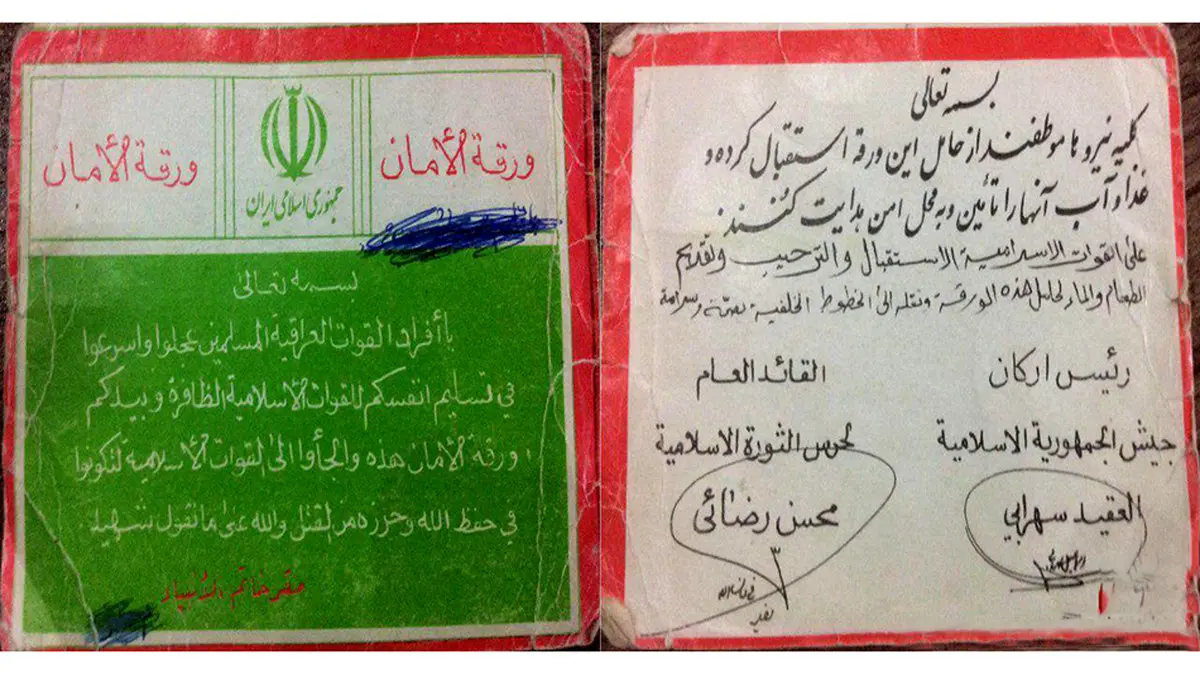 ورقة الأمان
جمهوری اسلامی ایران
ورقة الأمان
بسمه تعالى
يا أفراد القوات العراقية المسلمين عجلوا واسرعوا
في تسليم انفسكم للقوات الاسلامية الظافرة وبيدكم
ورقة الأمان هذه والجأوا الى القوات الاسلامية لتكونوا
في حفظ الله وحرزه من القتل والله على ما نقول شهيد
مقر خاتم الأنبياء
بسمه تعالی
کلیه نیروها موظفند از حامل این ورقه استقبال کرده و
غذا و آب آنها را تأمین و به محل امن هدایت کنند.
على القوات الاسلامية الاستقبال والترحيب وتقديم
الطعام والماء لحامل هذه الورقة ونقله الى الخطوط الخلفية بصحة وسلامة
رئيس اركان
جيش الجمهورية الاسلامية
العقيد سهرابي
القائد العام
لحرس الثورة الاسلامية
محسن رضائی